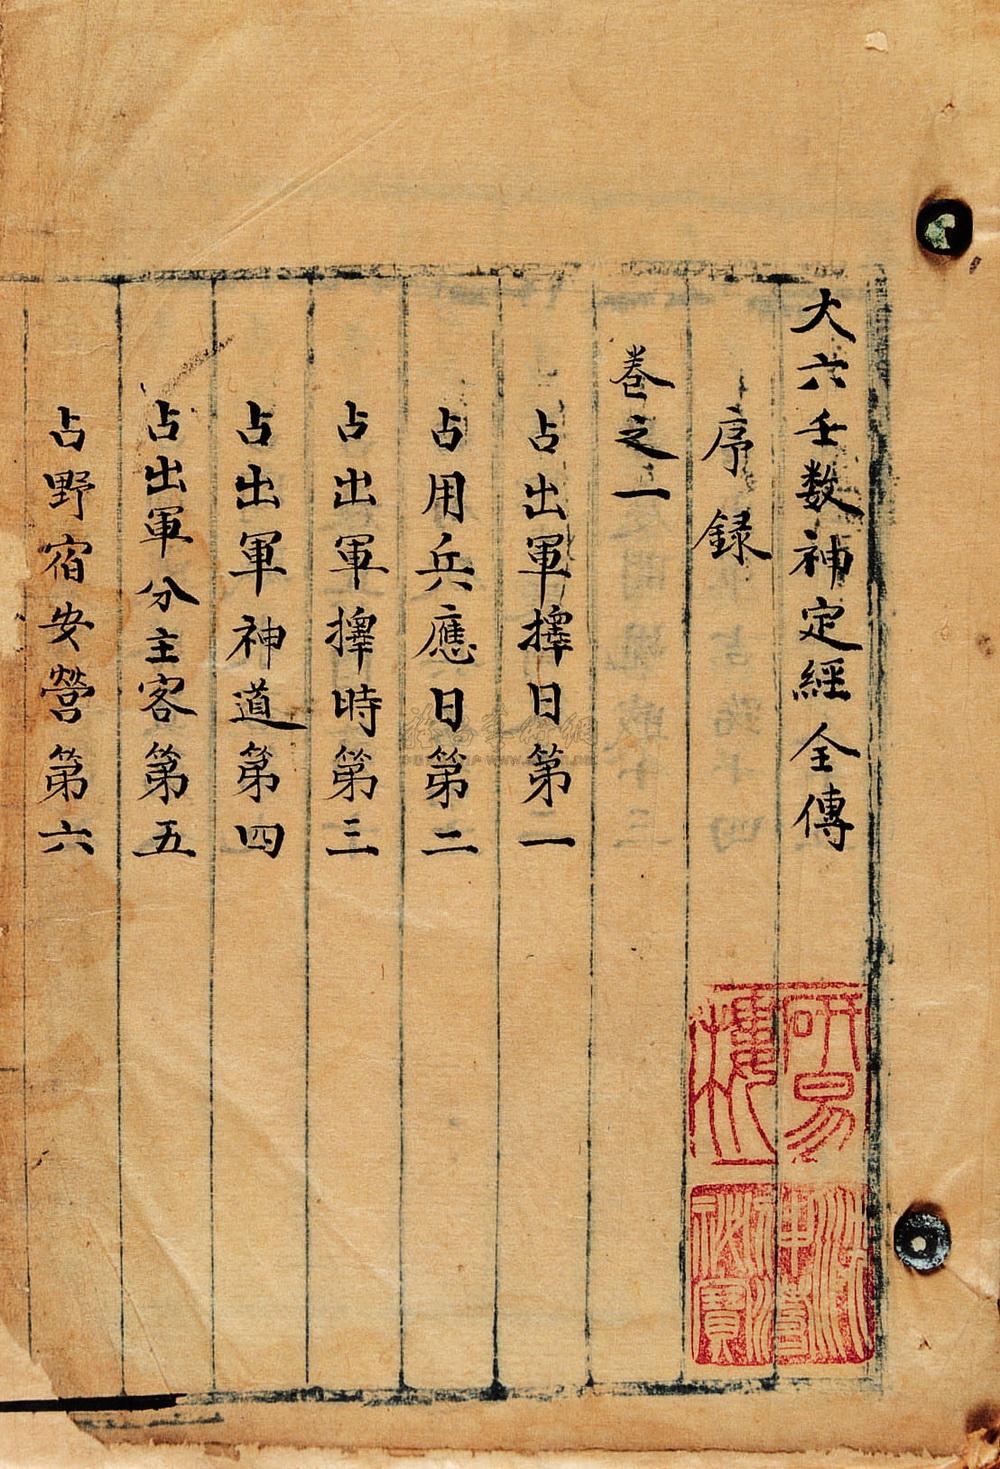 大六壬数神定經全傳
序録
卷之一
占出軍擇日第一
占用兵應日第二
占出軍擇時第三
占出軍神道第四
占出軍分主客第五
占野宿安營第六
研易樓